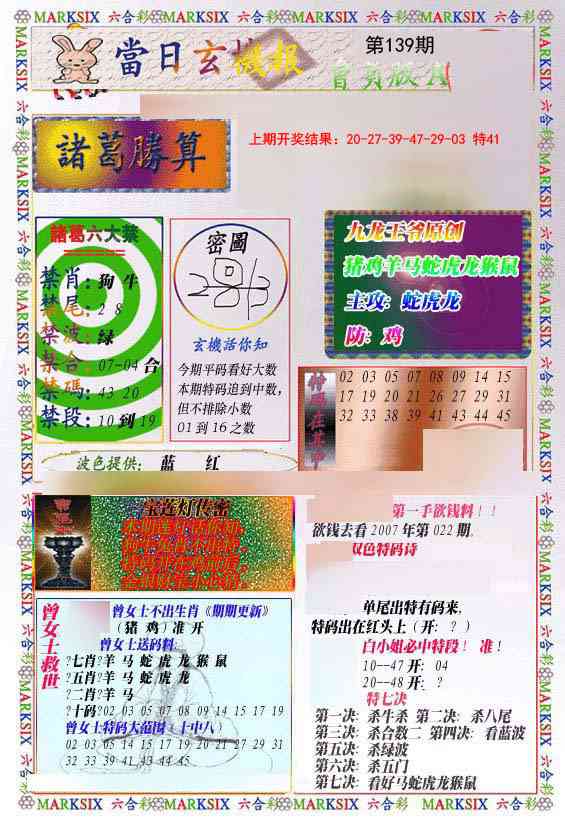 MARKSIX 六合彩 MARKSIX 六合彩 MARKSIX 六合彩 MARKSIX 六合彩
當日玄機報
第139期
上期开奖结果：20-27-39-47-29-03 特41
諸葛勝算
諸葛六大禁
禁肖：狗 牛
禁尾：2 8
禁波：绿
禁合：07-04 合
禁碼：43 20
禁段：10 到 19
密圖
玄機活你知
今期平码看好大数
本期特码追到中数，
但不排除小数
01 到 16 之数
九龙王爷原创
猪鸡羊马蛇虎龙猴鼠
主攻：蛇虎龙
防：鸡
特码在其中
02 03 05 07 08 09 14 15
17 19 20 21 26 27 29 31
32 33 38 39 41 43 44 45
波色提供： 蓝 红
宝莲灯传密
第一手欲钱料！！
欲钱去看 2007 年第 022 期。
双色特码诗
单尾出特有码来，
特码出在红头上（开：？）
白小姐必中特段！ 准！
10--47 开：04
20--48 开：？
特七决
第一决：杀牛杀 第二决：杀八尾
第三决：杀合数二 第四决：看蓝波
第五决：杀绿波
第六决：杀五门
第七决：看好马蛇虎龙猴鼠
曾女士救世
曾女士不出生肖《期期更新》
（猪 鸡）准 开
曾女士送码料:
?七肖?羊 马 蛇 虎 龙 猴 鼠
?五肖?羊 马 蛇 虎 龙
?二肖?羊 马
?十码?02 03 05 07 08 09 14 15 17 19
曾女士特码大范围（十中八）
02 03 05 14 15 17 19 20 21 27 29 31
32 33 39 41 43 44 45
MARKSIX 六合彩 MARKSIX 六合彩 MARKSIX 六合彩 MARKSIX 六合彩